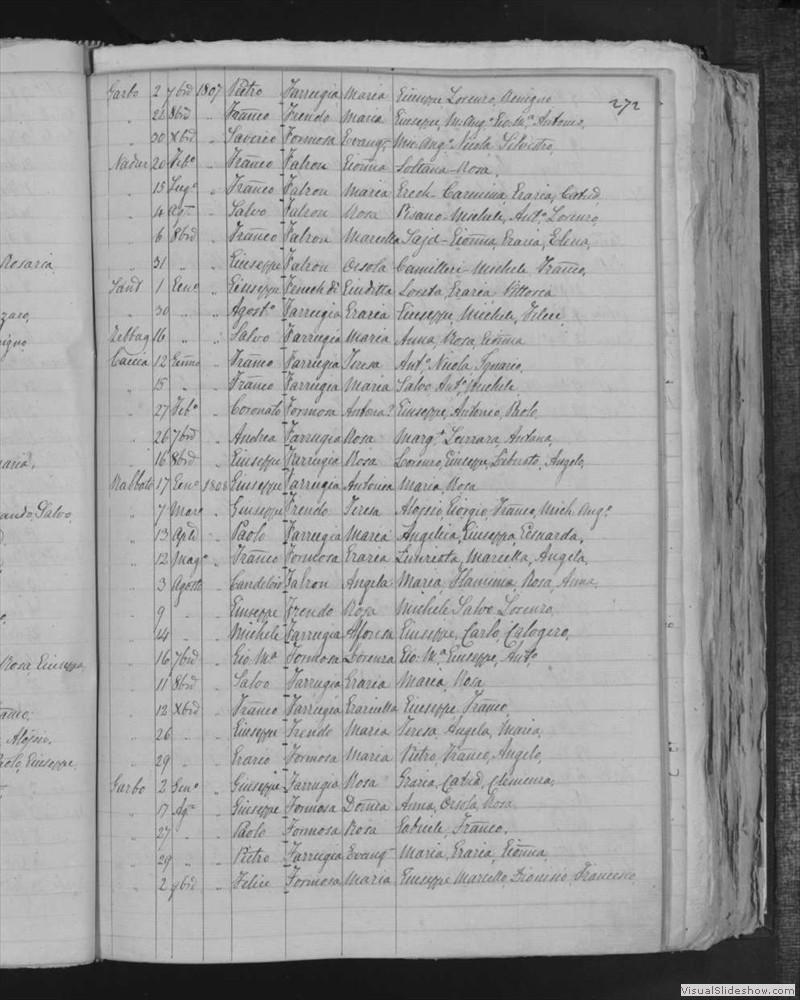 272
Garbo 2 9brd 1807 Pietro Farrugia Maria Giuseppe Lorenzo, Benigno
" 22 8brd " Franco Frendo Maria Giuseppe, M. Ang.º Gio. Mª. Antonio,
" 30 Xbrd " Saverio Formosa Evang.ª Mic. Ang.º Nicola Silvestro,
Nadur 20 Feb.º " Franco Falron Gionna Soltana Rosa,
" 15 Lug.º " Franco Falron Maria Grech Carmina, Grazia, Catrid
" 4 Ag.º " Salvo Falron Rosa Pisano Michele, Ant.º Lorenzo,
" 6 8brd " Franco Falron Marcella Sajd Gionna, Grazia, Elena,
" 31 " " Giuseppe Falron Orsola Camilleri Michele Franco,
Sand 1 Genº " Giuseppe Fenech di Giuditta Grazia
" 30 " " Agostº Farrugia Grazia Giuseppe, Michele, Felice,
Zebbug 16 " " Salvo Farrugia Maria Anna, Rosa, Gionna
Caccia 12 " Franco Farrugia Teresa Ant.º Nicola, Ignazio,
" 15 " " Franco Farrugia Maria Salvo Ant.º Michele
" 27 Feb.º " Coronato Formosa Antonia? Giuseppe, Antonio, Paolo
" 26 7brd " Andrea Farrugia Rosa Marg.ª Antona,
" 16 8brd " Giuseppe Farrugia Rosa Lorenzo, Giuseppe, Liberato, Angelo,
Rabbato 17 Genº 1808 Giuseppe Farrugia Antonia Maria, Rosa
" 7 Marz " Giuseppe Frendo Teresa Aloysio, Giorgio, Franco, Mich. Ang.º
" 13 Aple " Paolo Farrugia Maria Angelica, Giuseppa,
" 12 Mag.º " Franco Formosa Grazia Marcella, Angela,
" 3 Agosto " Candeloro Falron Angela Maria, Flaminia, Rosa, Anna,
" 9 " " Giuseppe Frendo Rosa Michele Salvo Lorenzo,
" 14 " " Michele Farrugia Alfonsa Giuseppe, Carlo, Calogero,
" 16 7brd " Gio. Mª Formosa Lorenza Gio. Mª. Giuseppe, Ant.º
" 11 8brd " Salvo Farrugia Grazia Maria, Rosa
" 12 Xbrd " Franco Farrugia Graziella Giuseppe, Franco,
" 26 " " Giuseppe Frendo Maria Teresa Angela, Maria,
" 29 " " Grazio Formosa Maria Pietro, Franco, Angelo,
Garbo 2 Genº " Giuseppe Farrugia Rosa Grazia, Catrid, Clemenza,
" 17 Ag.º " Giuseppe Formosa Domca Anna, Orsola, Rosa
" 27 " " Paolo Formosa Rosa Gabriele, Franco,
" 29 " " Pietro Farrugia Evang.ª Maria, Grazia, Gionna,
" 2 9brd " Felice Formosa Maria Giuseppe Marcello, Dionisio, Francesco
Rosaria
Rosa, Giuseppa,
Aloysio,
Paolo, Giuseppe
VisualSlideshow.com